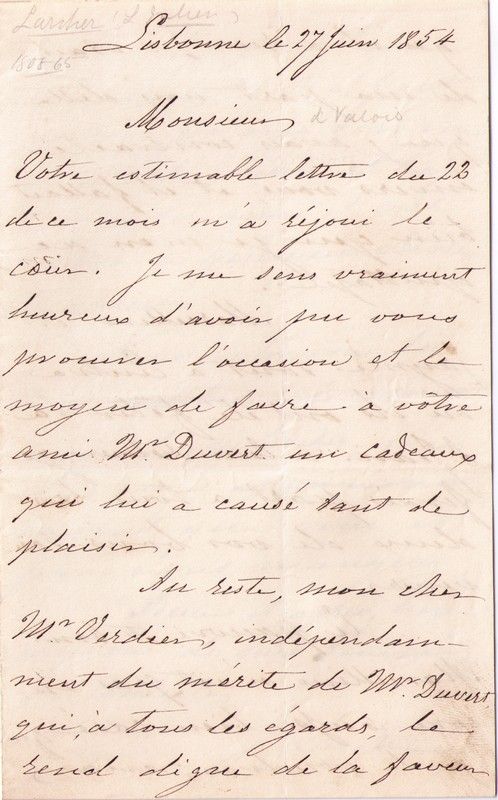 Larcher (L. Julien)
Lisbonne le 27 Juin 1854
Monsieur
d Valois
Votre estimable lettre du 22
de ce mois m'a réjoui le
cœur. Je me sens vraiment
heureux d'avoir pu vous
procurer l'occasion et le
moyen de faire à vôtre
ami Mr Duvert un cadeaux
qui lui a causé tant de
plaisir.
Au reste, mon cher
Mr Verdier, indépendam-
ment du mérite de Mr. Duvert
qui, à tous les égards, le
rend digne de la faveur